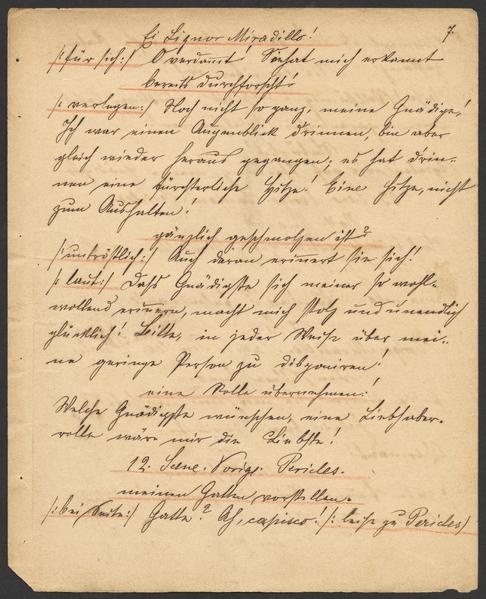 7.
Ei Signor Miradillo!
/:für sich:/ O verdammt! Sie hat mich erkannt
bereits durchforscht!
/:verlegen:/ Noch nicht so ganz, meine Gnädige!
Ich war einen Augenblick drinnen, bin aber
gleich wieder heraus gegangen; es hat drin-
nen eine fürchterliche Hitze! Eine Hitze, nicht
zum Aushalten!
gänzlich geschmolzen ist?
/:untröstlich:/ Auch daran erinnert sie sich!
/:laut:/ Dass Gnädigste sich meiner so wohl-
wollend erinnern, macht mich stolz und unendlich
glücklich! Bitte, in jeder Weise über mei-
ne geringe Person zu disponiren!
eine Rolle übernehmen!
Welche Gnädigste wünschen, eine Liebhaber-
rolle wäre mir die Liebste!
12. Scene. Vorige. Pericles.
meinen Gatten vorstellen.
/:bei Seite:/ Gatte? Ah, capisco! /:leise zu Pericles/